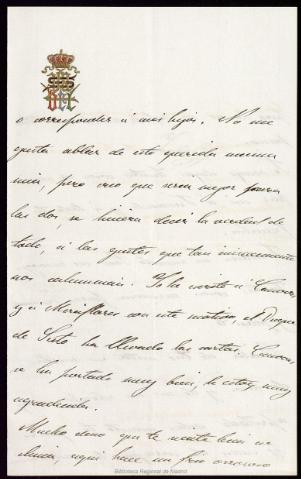 o corresponder a mis hijos. No me
gusta ablar de esto querida mama
mia, pero creo que seria mejor para
las dos, se hiciera decir la verdad de
todo, a las gentes que tan inicuamente
nos calumnian. Yo he escrito a Canovas
y a Miraflores con este motivo, el Duque
de Sesto ha llevado las cartas. Canovas
se ha portado muy bien, le estoy muy
agradecida.
Mucho deseo que te
aqui hace un frio
Biblioteca Regional de Madrid